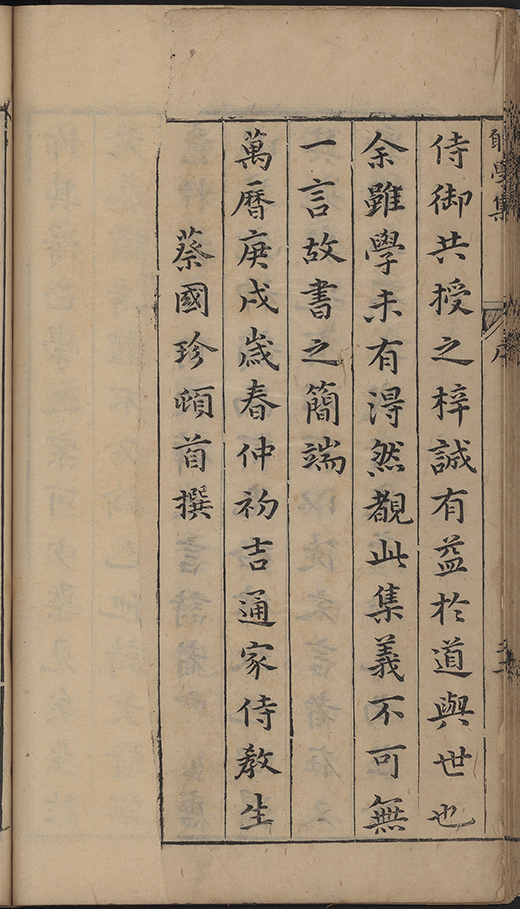 學集
侍御共授之梓誠有益於道與世也
余雖學未有淂然覩此集義不可無
一言故書之簡端
萬曆庚戌歲春仲初吉通家侍教生
蔡國珍頓首撰